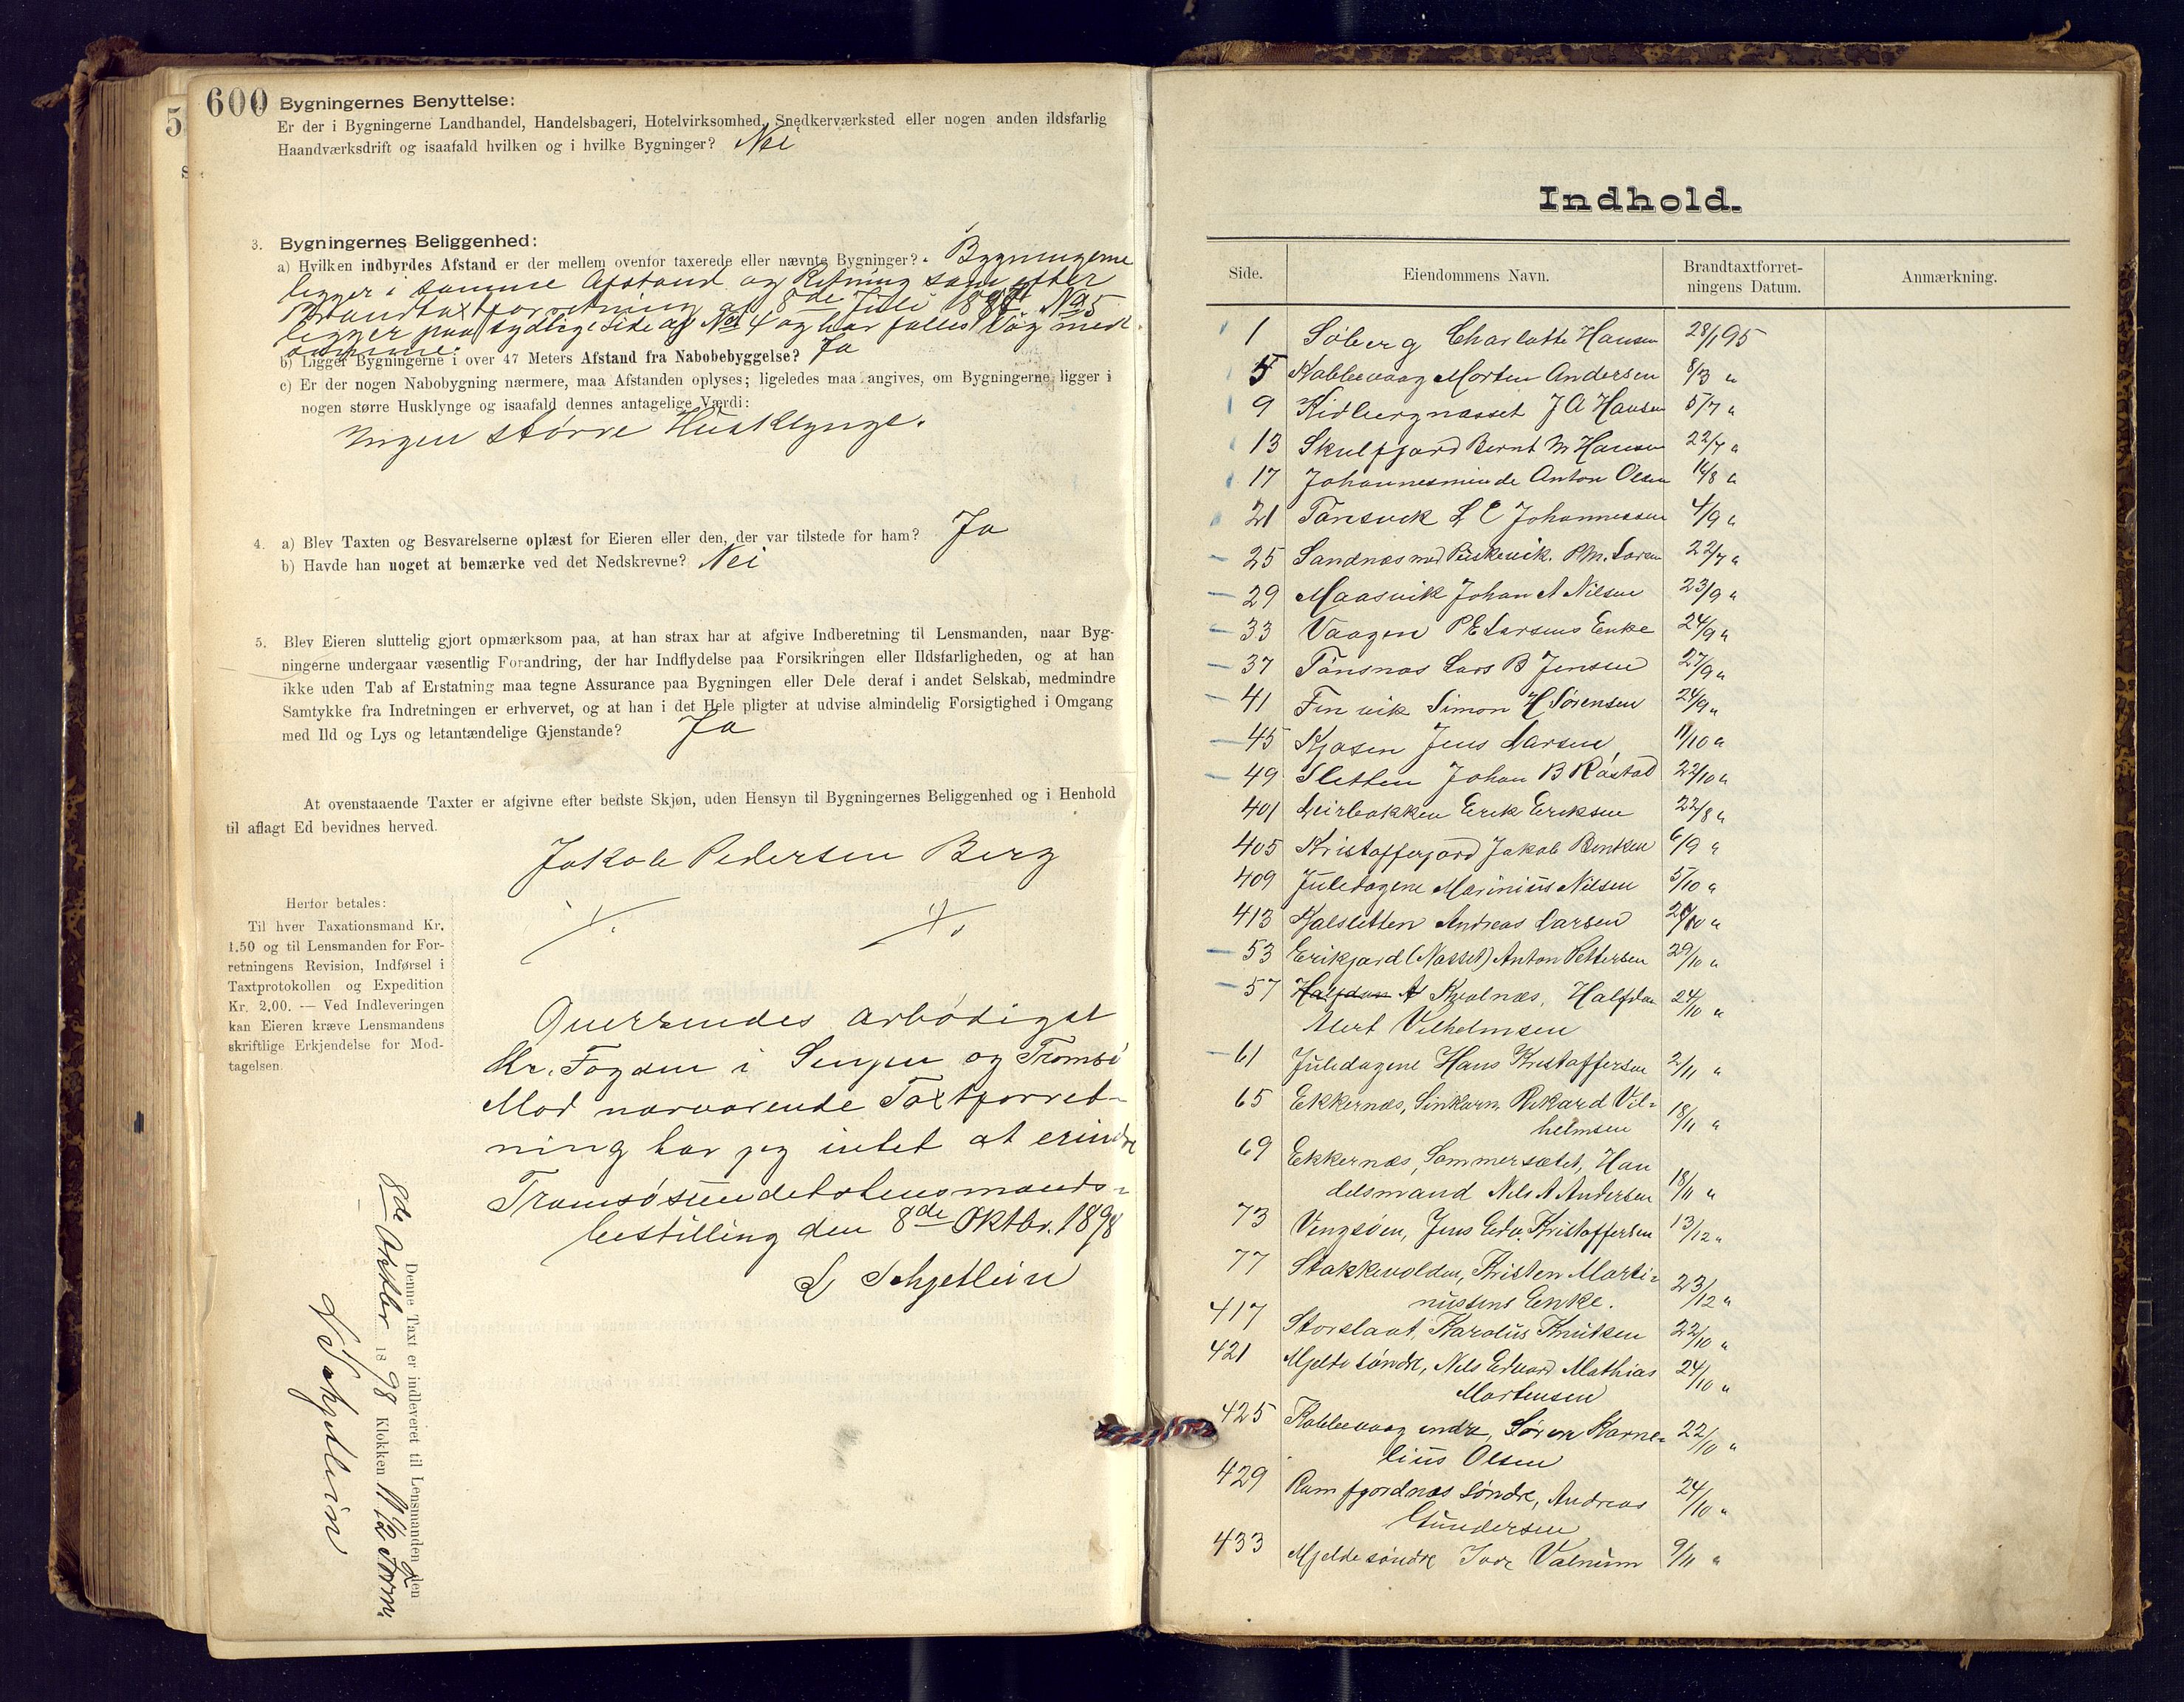 600 Bygningernes Benyttelse:
Er der i Bygningerne Landhandel, Handelsbageri, Hotelvirksomhed, Snedkerværksted eller nogen anden ildsfarlig
Haandværksdrift og isaafald hvilken og i hvilke Bygninger? Nei
3. Bygningernes Beliggenhed:
a) Hvilken indbyrdes Afstand er der mellem ovenfor taxerede eller nævnte Bygninger? Bygningerne
ligger i samme Afstand og Retning som efter
Brandtaxtforretning af 8de Juli No 5
ligger paa sydlige Side af No 4 og har fælles Væg med
samme.
b) Ligger Bygningerne i over 47 Meters Afstand fra Nabobebyggelse? Ja
c) Er der nogen Nabobygning nærmere, maa Afstanden oplyses; ligeledes maa angives, om Bygningerne ligger i
nogen større Husklynge og isaafald dennes antagelige Værdi:
Ingen større Husklynge.
4. a) Blev Taxten og Besvarelserne oplæst for Eieren eller den, der var tilstede for ham? Ja
b) Havde han noget at bemærke ved det Nedskrevne? Nei
5. Blev Eieren sluttelig gjort opmærksom paa, at han strax har at afgive Indberetning til Lensmanden, naar Byg-
ningerne undergaar væsentlig Forandring, der har Indflydelse paa Forsikringen eller Ildsfarligheden, og at han
ikke uden Tab af Erstatning maa tegne Assurance paa Bygningen eller Dele deraf i andet Selskab, medmindre
Samtykke fra Indretningen er erhvervet, og at han i det Hele pligter at udvise almindelig Forsigtighed i Omgang
med Ild og Lys og letantændelige Gjenstande? Ja
At ovenstaaende Taxter er afgivne efter bedste Skjøn, uden Hensyn til Bygningernes Beliggenhed og i Henhold
til aflagt Ed bevidnes herved.
Jakob Pedersen Berg
Herfor betales:
Til hver Taxationsmand Kr.
1.50 og til Lensmanden for For-
retningens Revision, Indførsel i
Taxtprotokollen og Expedition
Kr. 2,00. — Ved Indleveringen
kan Eieren kræve Lensmandens
skriftlige Erkjendelse for Mod-
tagelsen.
Oversendes ærbødigst
Hr. Fogden i Senjen og Tromsø
Mod nærværende Taxtforret-
ning har jeg intet at erindre
Tromsøsundets Lensmands-
bestilling den 8de Oktbr. 1898
L Schjetlein
Denne Taxt er indleveret til Lensmanden den
8de Oktbr 1898 Klokken 11 1/2 Form.
L Schjetlein
Indhold.
Side. Eiendommens Navn. Brandtaxtforret-
ningens Datum. Anmærkning.
1 Søberg Charlotte Hansen 28/1 95
5 Kobbevaag Morten Andersen 8/3 "
9 Kidbergnæsset J A Hansen 5/7 "
13 Skulfjord Bernt M Hansen 22/7 "
17 Johannesminde Anton Olsen 14/8 "
21 Tønsvik L E Johannessen 4/9 "
25 Sandnæs med P. M. Larsen 22/7 "
29 Maasvik Johan A Nilsen 23/9 "
33 Vaagen P E Larsens Enke 24/9 "
37 Tønsnæs Lars B Jensen 27/9 "
41 Finvik Simon H Sørensen 24/9 "
45 Kjosen Jens Larsen 11/10 "
49 Sletten Johan B Råstad 22/10 "
401 Leirbakken Erik Eriksen 22/8 "
405 Kristoffergjord Jakob Bentsen 6/9 "
409 Juledagene Marinius Nilsen 5/10 "
413 Kjalsletten Andreas Larsen /10 "
53 Erikjord (Næsset) Anton Pettersen 29/10 "
57 Halfdan A Kvalnæs, Halfdan 24/10 "
Alert Vilhelmsen
61 Juledagene Hans Kristoffersen 2/11 "
65 Ekkernæs, Rikard Vil-
helmsen 18/11 "
69 Ekkernæs, Sommersætet, Han
delsmand Nels A Andersen 18/11 "
73 Vengsøen, Jens Edv. Kristoffersen 13/12 "
77 Stakkevolden, Kristen Marti-
nussens Enke. 23/12 "
417 Storslaat, Karolus Knutsen 22/10 "
421 Mjelde søndre, Nels Edvard Mathias 24/10 "
Mortensen
425 Kobbevaag indre, Søren Korne-
lius Olsen 22/10 "
429 Ramfjordnæs søndre, Andreas 24/10 "
Gundersen
433 Mjelde søndre Valnum 9/11 "